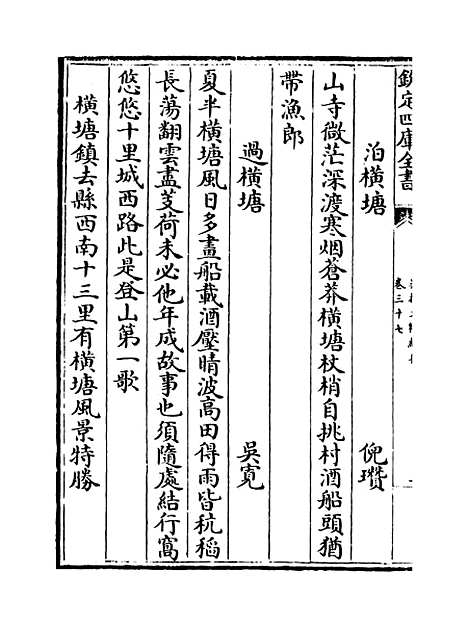 欽定四庫全書
卷三十七
泊橫塘 倪瓚
山寺微茫深渡寒烟蒼莽橫塘杖梢自挑村酒船頭猶
帶漁郎
過橫塘 吳寛
夏半橫塘風日多畫船載酒壓晴波髙田得雨皆秔稻
長蕩翻雲盡芰荷未必他年成故事也須隨處結行窩
悠悠十里城西路此是登山第一歌
橫塘鎮去縣西南十三里有橫塘風景特勝